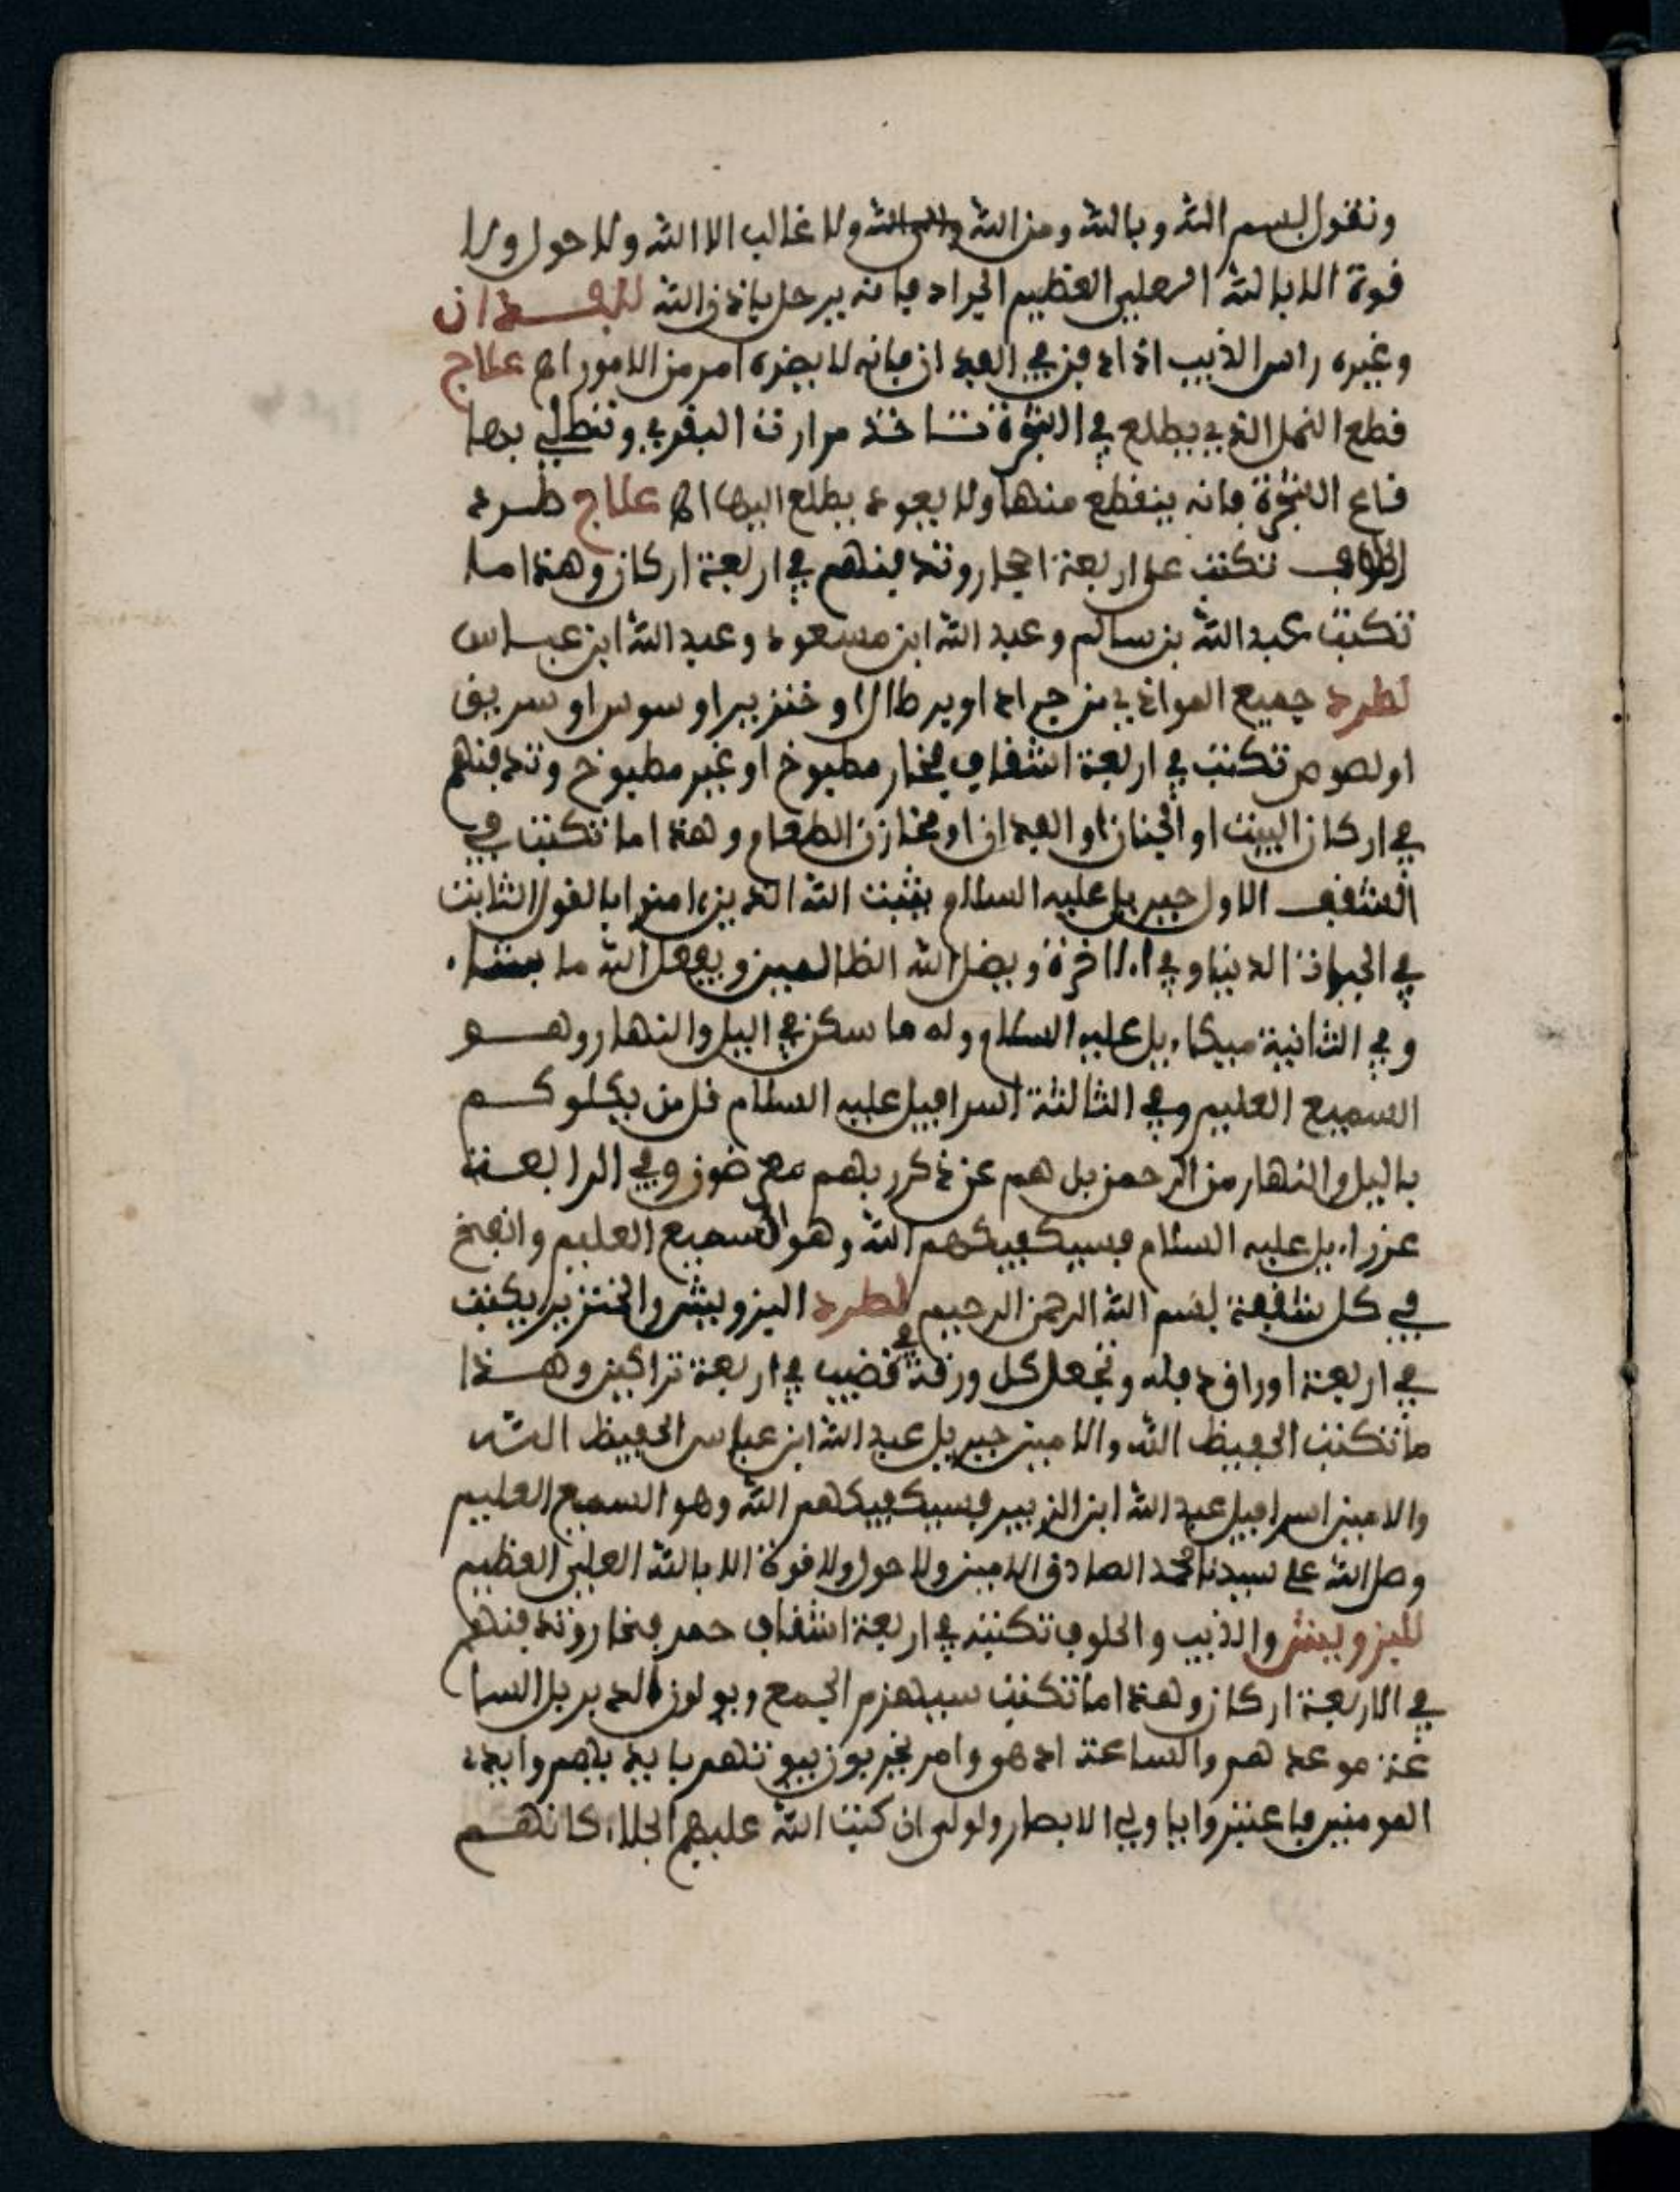 ونقول بسم الله وبالله ومن الله والى الله ولا غالب الا الله ولا حول ولا
قوة الا بالله العلي العظيم الجراد فانه يرحل باذن الله للفدان
وغيره راس الذيب اذا دفن في الفدان فانه لا يضره امر من الامور اه علاج
قطع النمل الذي يطلع في الشجرة تاخذ مرارت البقري وتطلي بها
قاع الشجرة فانه ينقطع منها ولا يعود يطلع اليها اه علاج طرد
الحلوف تكتب على اربعة احجار وتدفنهم في اربعة اركان وهذا ما
تكتب عبد الله بن سالم وعبد الله ابن مسعود وعبد الله ابن عباس
لطرد جميع المواذي من جراد او برطال او خنزير او سوس او سريق
او لصوص تكتب في اربعة اشقاف فخار مطبوخ او غير مطبوخ وتدفنهم
في اركان البيت او الجنان او الفدان او مخازن الطعام وهذا ما تكتب في
الشقف الاول جبريل عليه السلام يثبت الله الذين ءامنوا بالقول الثابت
في الحياة الدنيا وفي الاخرة ويضل الله الظالمين ويفعل الله ما يشاء
وفي الثانية ميكاءيل عليه السلام وله ما سكن في اليل والنهار وهو
السميع العليم وفي الثالثة اسرافيل عليه السلام قل من يكلوكم
باليل والنهار من الرحمن بل هم عن ذكر ربهم معرضون وفي الرابعة
عزراءيل عليه السلام فسيكفيكهم الله وهو السميع العليم وانسخ
في كل شقفة بسم الله الرحمن الرحيم لطرد اليزويش والخنزير يكتب
في اربعة اوراق دفله وتجعل كل ورقة في قضيب في اربعة تراكين وهذا
ما تكتب الحفيظ الله والامين جبريل عبد الله ابن عباس الحفيظ الله
والامين اسرافيل عبد الله ابن الزبير فسيكفيكهم الله وهو السميع العليم
وصل الله على سيدنا محمد الصادق الامين ولا حول ولا قوة الا بالله العلي العظيم
لليزويش والذيب والحلوف تكتبه في اربعة اشقاف حمر فخار وتدفنهم
في الاربعة اركان وهذا ما تكتب سيهزم الجمع ويولون الدبر بل السا
عة موعدهم والساعة ادهى وامر يخربون بيوتهم بايديهم وايد
المومنين فاعتبروا ياولي الابصار ولولى ان كتب الله عليهم الجلاء كانهم